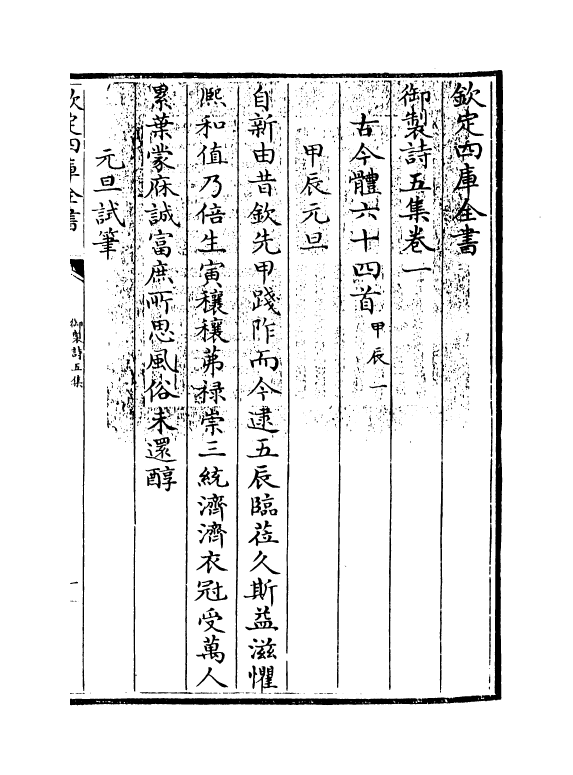 欽定四庫全書
御製詩五集卷一
古今體六十四首甲辰一
甲辰元旦
自新由昔欽先甲踐阼而今逮五辰臨莅久斯益滋懼
熈和值乃倍生寅穰穰茀禄崇三統濟濟衣冠受萬人
累葉蒙庥誠富庶所思風俗未還醇
元旦試筆
欽定四庫全書
御製詩五集
一